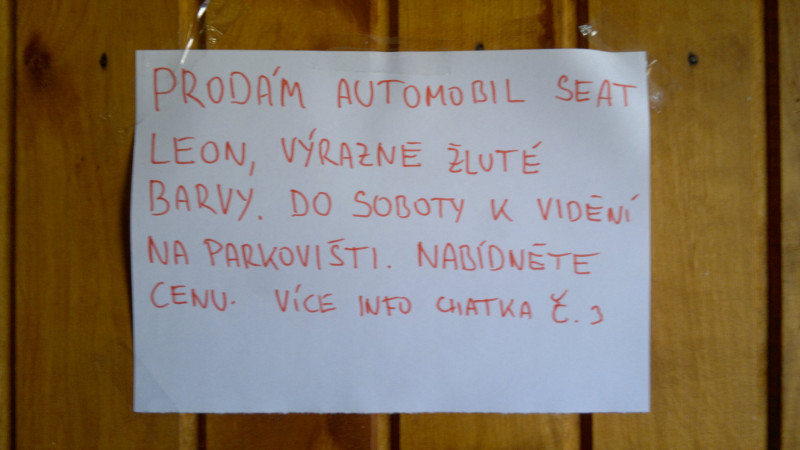 PRODÁM AUTOMOBIL SEAT
LEON, VÝRAZNĚ ŽLUTÉ
BARVY. DO SOBOTY K VIDĚNÍ
NA PARKOVIŠTI. NABÍDNĚTE
CENU. VÍCE INFO CHATKA Č. 3